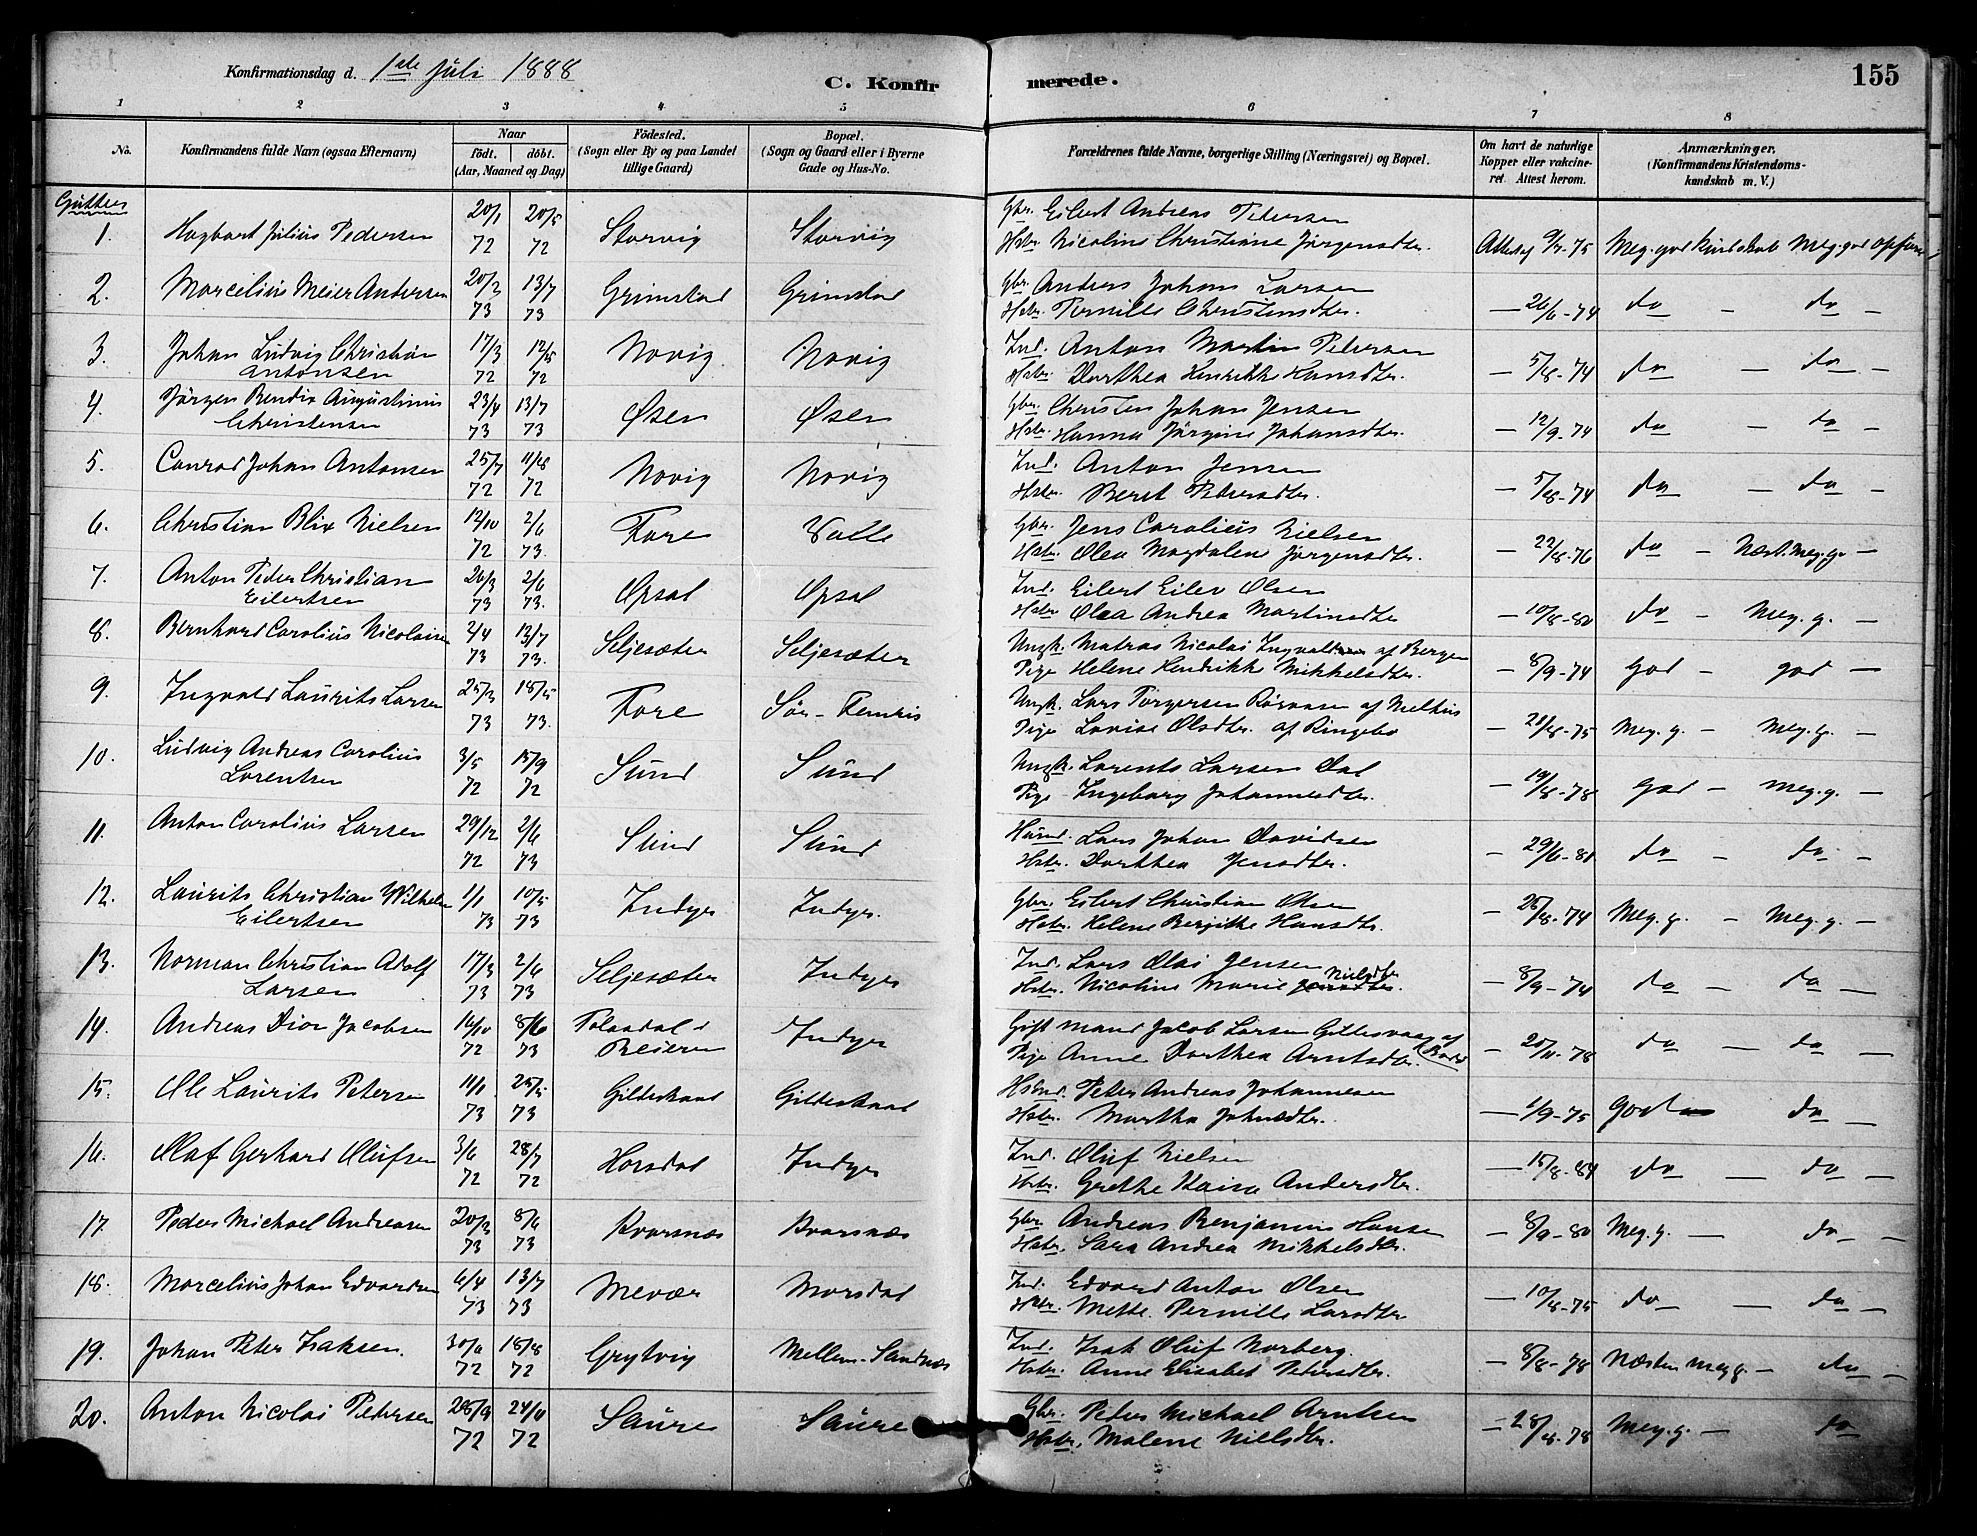 Konfirmationsdag d. 1ste Juli 1888
C. Konfirmerede.
155
1 2 3 4 5 6 7 8
No. Konfirmandens fulde Navn (ogsaa Efternavn) Naar födt. döbt. (Aar, Maaned og Dag) Födested. (Sogn eller By og paa Landet tillige Gaard) Bopæl. (Sogn og Gaard eller i Byerne Gade og Hus-No. Forældrenes fulde Navne, borgerlige Stilling (Næringsvei) og Bopæl. Om havt de naturlige Kopper eller vakcineret. Attest herom. Anmærkninger, (Konfirmandens Kristendomskundskab m. V.)
Gutter
Gbr. Eilert Andreas Petersen
1. Hagbart Julius Pedersen 20/1 72 20/5 72 Storvig Storvig Hstr. Nicoline Christiane Jørgensdtr. Meg. god kundskab Meg. god
Gbr. Andreas Johan Larsen
2. Marcelius Meier Andersen 20/2 73 13/7 73 Grimstad Grimstad Hstr. Pernille Christensdtr. — 26/6-74 do — do —
Ind. Anton Martin Petersen
3. Johan Ludvig Christian Antonsen 17/3 72 12/5 72 Novig Novig Hstr. Dorthea Henrikke Hansdtr. — 5/8-74 do — do —
Gbr. Christen Johan Jensen
4. Jörgen Bendix Augustinus Christensen 23/4 73 13/7 73 Øsen Øsen Hstr. Hanna Jörgine Johansdtr. — 12/9-74 do — do —
Ind. Anton Jensen
5. Conrad Johan Antonsen 25/7 72 11/8 72 Novig Novig Hstr. Berit Petersdtr. — 5/8-74 do — do —
Gbr. Jens Carolius Nielsen
6. Christian Blix Nielsen 12/10 72 2/6 73. Fore Valle Hstr. Olea Magdalene Jørgensdtr. — 22/8-76 do — Næst. Meg. g. —
Ind. Eilert Eilev Olsen
7. Anton Peder Christian Eilertsen 26/3 73 2/6 73. Øpsal Øpsal Hstr. Olea Andrea Martinsdtr — 10/8-80 do — Meg. g. —
Ungk. Matias Nicolai Ingvaldsen af Bergen
8. Bernhard Carolius Nicolaisen 2/4 73 13/7 73. Seljesæter Seljesæter Pige Helene Hendrikke Mikkelsdtr. — 8/9-74 God — god —
Ungk. Lars Torgersen af Melhus
9. Ingvald Laurits Larsen 73 18/5 73. Fore Sör- Pige Lovise Olsdtr. af Ringebo Meg. g. — Meg. g. —
Ungk. Lorents Larsen Dal
10. Ludvig Andreas Carolius Lorentsen 3/5 72 15/9 72 Sund Sund Pige Ingeborg Johannesdtr. — 19/8-78 God — Meg. g. —
Husmd. Lars Johan Davidsen
11. Anton Carolius Larsen 29/12 72 2/6 73 Sund Sund Hstr. Dorthea Jensdtr. — 29/6-81 do — do —
Gbr. Eilert Christian Olsen
12. Laurits Christian Wilhelm Eilertsen 1/1 73 10/5 73 Indyr Indyr. Hstr. Helene Bergitte Hansdtr. Meg. g. — Meg. g. —
Ind. Lars Olai Jensen
13. Norman Christian Adolf Larsen 17/3 73 2/6 73 Seljesæter Indyr Hstr. Nicoline Marie Nielsdtr — 8/9-74 do — do —
Gift mand Jacob Larsen af
14. Andreas Dior Jacobsen 14/10 72 8/6 73 Beieren Indyr Pige Anne Dorthea Arntsdtr. — 20/11-78 do — do —
Hsmd. Peter Andreas Johannesen
15. Ole Laurits Petersen 11/1 73 25/5 73 Gildeskaal Gildeskaal Hstr. Martha Johnsdtr. — 1/9-75 God — do —
Ind. Oluf Nielsen
16. Olaf Gerhard Olufsen 3/6 72 28/7 72 Horsdal Indyr Hstr. Grethe Kaisa Andersdtr. — 15/8-84 do — do —
Gbr. Andreas Benjamin Hansen
17. Peder Michael Andreasen 20/2 73 8/6 73 Kvarsnæs Kvarsnæs Hstr. Sara Andrea Mikkelsdtr. — 8/9-80 Meg. g. — do —
Ind. Edvard Anton Olsen
18. Marcelius Johan Edvardsen 6/4 73 13/7 73 Mevær Morsdal Hstr. Mette Pernille Larsdtr — 10/8-75 do — do —
Ind. Isak Oluf Norberg.
19. Johan Peter Isaksen. 30/6 72 18/8 72 Grytvig Mellem-Sandnæs Hstr. Anne Elisabet Petersdtr. — 8/8-78 Næsten meg g. — do —
Gbr. Peter Michael Arntsen
20. Anton Nicolai Pedersen 72 24/11 72 Saure Saure Hstr. Malene Nielsdtr. — 28/8-78 Meg. g. — do —